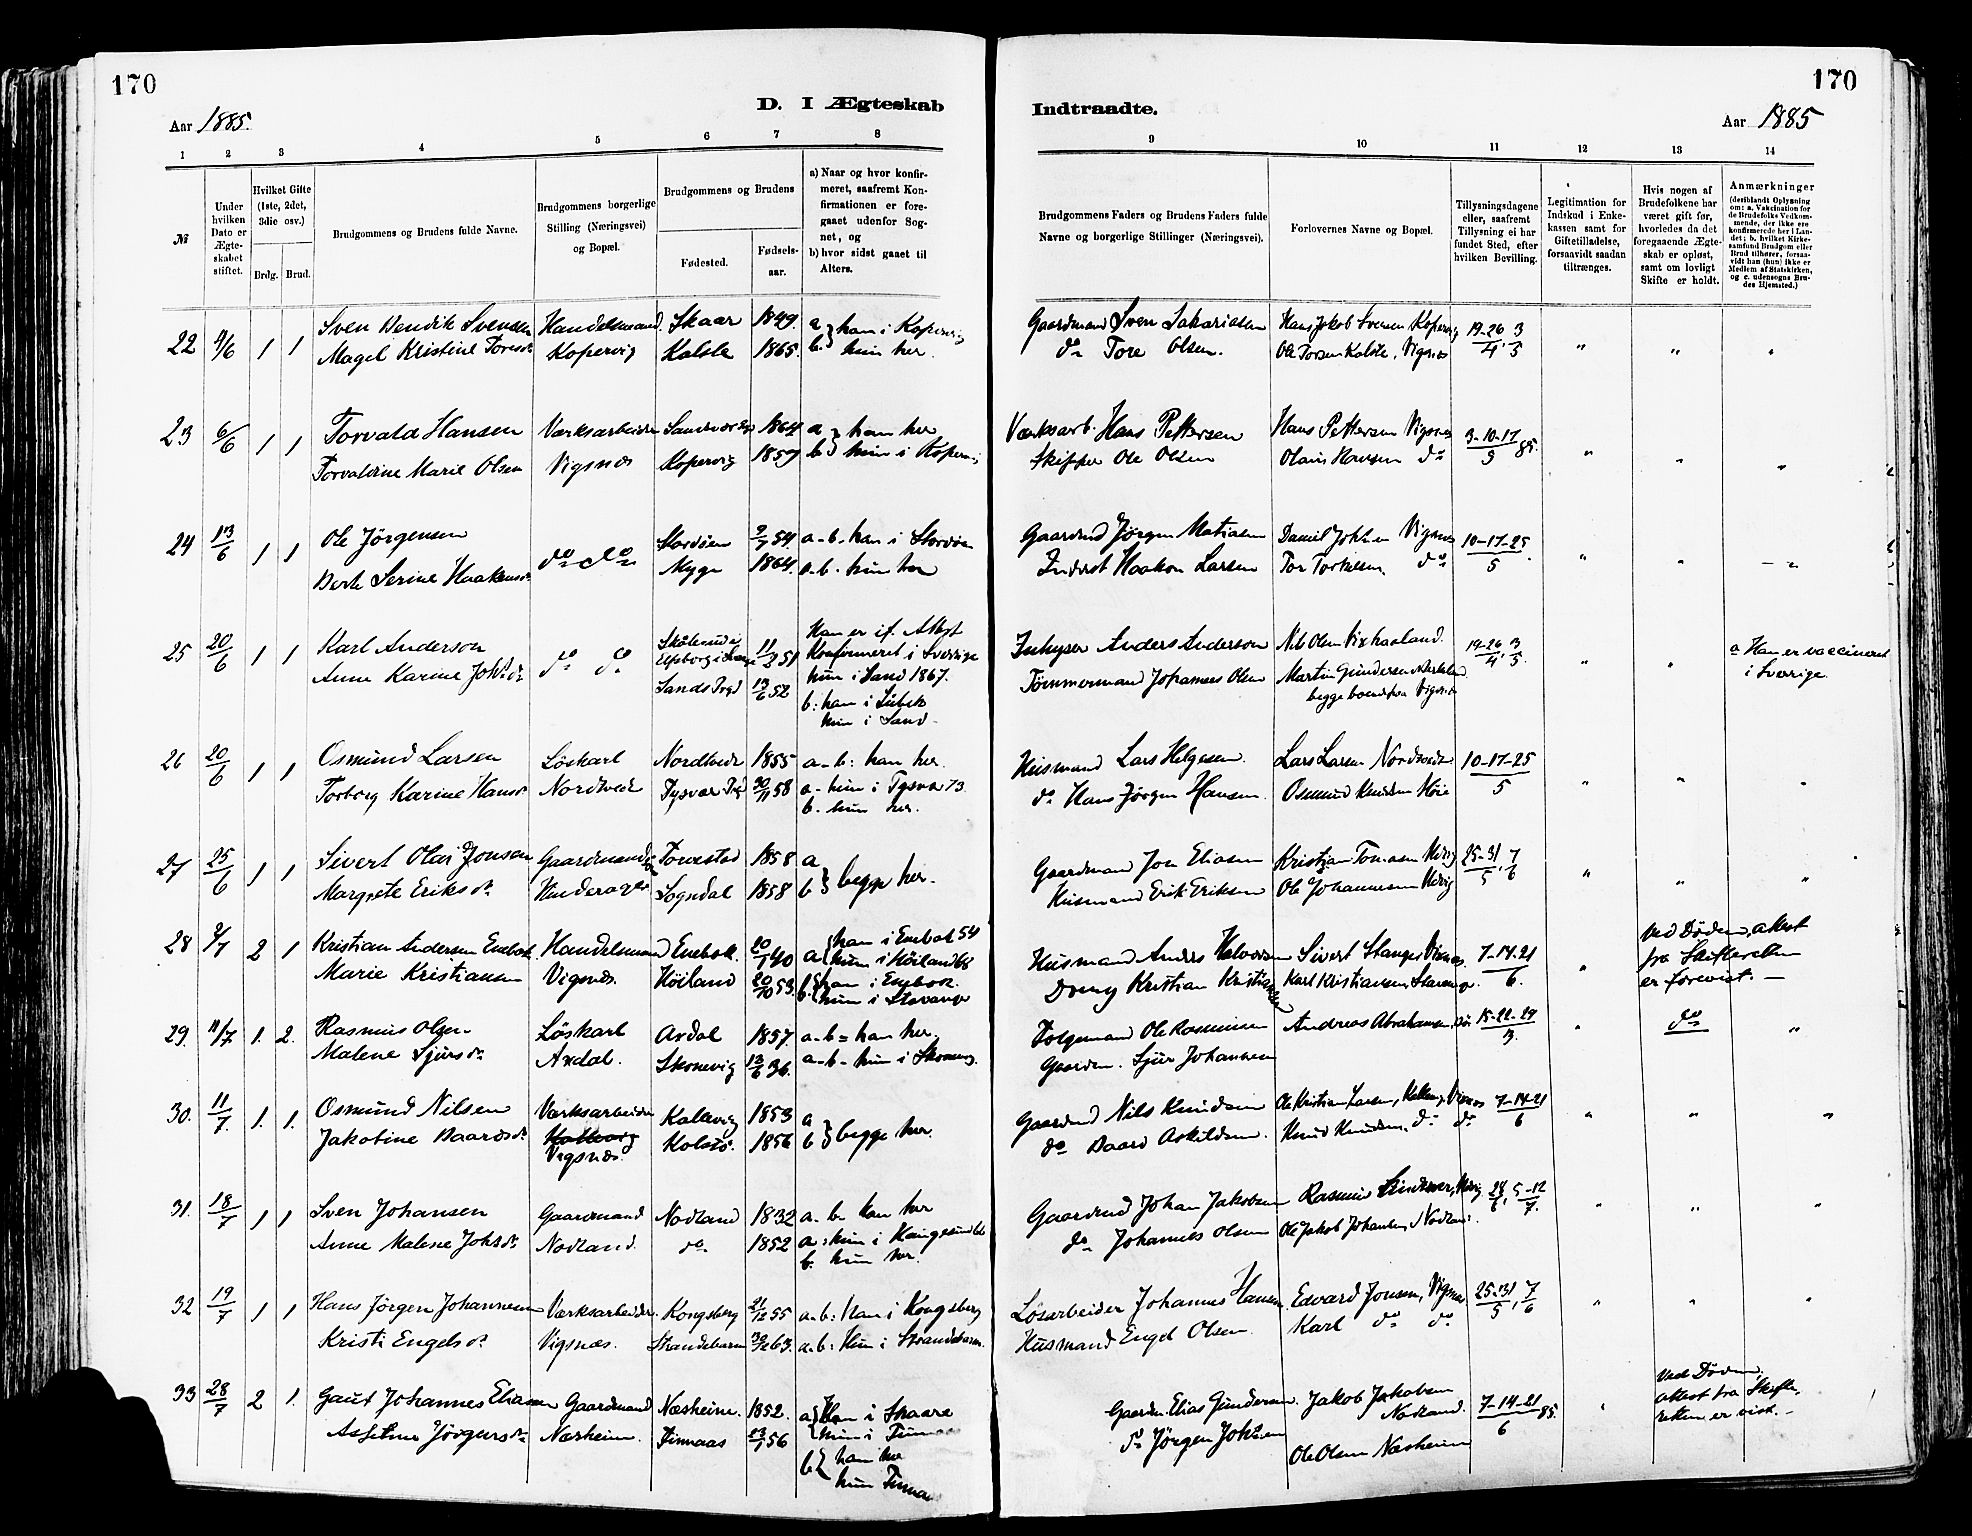 170
170
D. I Ægteskab Indtraadte.
Aar 1885.
Aar 1885
1 2 3 4 5 6 7 8 9 10 11 12 13 14
№
Under hvilken Dato er Ægteskabet stiftet.
Hvilket Gifte (1ste, 2det, 3die osv.)
Brdg. Brud.
Brudgommens og Brudens fulde Navne.
Brudgommens borgerlige Stilling (Næringsvei) og Bopæl.
Brudgommens og Brudens
Fødested.
Fødselsaar.
a) Naar og hvor konfirmeret, saafremt Konfirmationen er foregaaet udenfor Sognet, og
b) hvor sidst gaaet til Alters.
Brudgommens Faders og Brudens Faders fulde Navne og borgerlige Stillinger (Næringsvei).
Forlovernes Navne og Bopæl.
Tillysningsdagene eller, saafremt Tillysning ei har fundet Sted, efter hvilken Bevilling.
Legitimation for Indskud i Enkekassen samt for Giftetilladelse, forsaavidt saadan tiltrænges.
Hvis nogen af Brudefolkene har været gift før, hvorledes da det foregaaende Ægteskab er opløst, samt om lovligt Skifte er holdt.
Anmærkninger
(deriblandt Oplysning om: a. Vakcination for de Brudefolks Vedkommende, der ikke ere konfirmerede her i Landet; b. hvilket Kirkesamfund Brudgom eller Brud tilhører, forsaavidt han (hun) ikke er Medlem af Statskirken, og c. udensogns Brudes Hjemsted.)
22 1 1 Sven Henrik Svensen Handelsmand Skaar 1849. a han i Kopervig Gaardmand Sven Sakariasen Hans Jakob Svensen Kopervig 19-26 3
Magel Kristine Toresdr Kopervig Kolstø 1865. b. hun her. do Tore Olsen. Ole Torsen Kolstø, Vigsnes 4, 5 " " "
23 6/6 1 1 Torvald Hansen Værksarbeider 1864 a han her Værksarb. Hans Pettersen Hans Pettersen Vigsnes 3-10-17
Torvaldine Marie Olsen Vigsnæs Kopervig 1859 b hun i Kopervig Skipper Ole Olsen Olaus Hansen do 85. " " "
24 13/6 1 1 Ole Jörgensen do do Stordöen 54. a-b-han i Stordöen Gaardmd Jörgen Matiasen Daniel Vigsnæs 10-17-25
Berte Serine Haakonsdr Myge 1864. a-b. hun her Inderst Haakon Larsen Tor Torkelsen. do 5 " "
25 20/6 1 1 Karl Anderson do do 11/2 51 Han er if. Attest Konfirmeret i Sverrige Anders Anderson Nils Olsen Vixhaaland. 19-26, 3
Anne Karine Johsdr Sands Prgd 13/6 52 hun i Sand 1867. Tømmermand Johannes Olsen Martin Gundersen 4, 5
b: han i Lübek
hun i Sand
a Han er vaccineret
i Sverrige.
26 20/6 1 1 Osmund Larsen Løskarl Nordtveit 1855 a-b: han her. Husmand Lars Helgesen. Lars Larsen Nordtveit 10-17-25
Torborg Karine Hansdr Nordtveit Tysvær Prgd 30/11 58 a-hun i Tysvær 73. do Hans Jörgen Hansen. Osmund Knudsen Høie 5 " "
b. hun her.
27 25/6 1 1 Sivert Olai Jonsen Gaardmand Torvestad 1858 a Gaardmand Jon Eliasen 25-31, 7
Margrete Eriksdr Hinderager Sogndal 1858 b begge her. Husmand Erik Eriksen Ole Johannesen 5, 6 " " "
28 2/7 2 1 Kristian Andersen Enebak Handelsmand Enebak. 20/1 40 a han i Enebak 54 Husmand Anders Halvorsen Sivert Stange, Vigsnæs. 7-14-21 Ved Døden, attest
hun i Höiland 68 fra Skifteretten
Marie Kristiansen Vigsnæs. Höiland 20/10 53. b. han i Enebak. Kristian Kristiansen Karl Kristiansen, Stavanger. 6. " er forevist. —
hun i Stavanger
29. 11/7 1. 2. Rasmus Olsen Løskarl Avdal 1857. a-b = han her. Ole Rasmussen Andreas Abrahamsen, 15-22-29 " do "
Malene Sjursdr Avdal. Skonevig 13/6 36. a-b- hun i Skonevig. Gaardm. Sjur Johansen
30. 11/7. 1. 1. Osmund Nilsen Værksarbeider Kallevig 1853 a Gaardmd Nils Knudsen Ole Kristian Larsen, Vigsnæs 7-14-21
Jakobine Baardsdr Kallevig Kolstø. 1856 b begge her. do Baard Askildsen. Knud Knudsen, do do 6 " " "
Vigsnæs.
31. 18/7 1 1 Sven Johansen Gaardmand Nodland 1832 a-b- han her Gaardmd Johan Jakobsen Rasmus 28, 5-12
Anne Malene Johsdr Nodland. do. 1852 a: hun i Haugesund do Johannes Olsen Ole Jakob Johansen, Nodland. 7. " " "
b. hun her.
32 19/7 1 1 Hans Jörgen Johannesen Værksarbeider. Kongsberg 21/12 55 a-b: Han i Kongsberg Løsarbeider Johannes Hansen Edvard Jonsen, Vigsnæs 25-31, 7
Kristi Engelsdr Vigsnæs. Strandebarm 63. a-b: Hun i Strandebarm. Husmand Engel Olsen. Karl do do. 5, 6 " " "
33 28/7 2 1. Gaut Johannes Eliasen Gaardmand Næsheim. 1852. a Han i Skaare Gaardm. Elias Gundersen. Jakob Jakobsen 7-14-21 Ved Døden,
hun i Nodland. 85. attest fra Skifte-
Asseline Jörgensdr Næsheim. Finnaas 56 do Jörgen Johsen 6 retten er vist. —
b han her Ole Olsen Næsheim
hun Finnaas